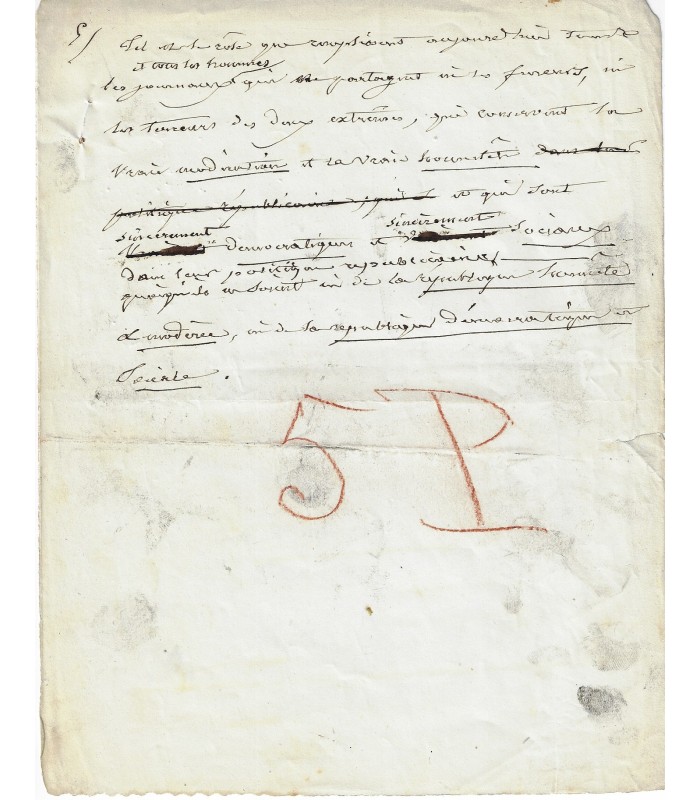 5/ Tel est le rôle que remplissent aujourd'hui toute
et tous les hommes
les journaux qui ne partagent ni les fureurs, ni
les terreurs des deux extrêmes, qui conservent la
vraie modération et la vraie honnêteté dans leur
politique républicaine, et qui sont
sincèrement sincèrement
démocratiques et sociaux
dans leur position républicaine,
quoiqu'ils en soient de la république honnête
& modérée, ou de la république démocratique et
sociale.
5 P